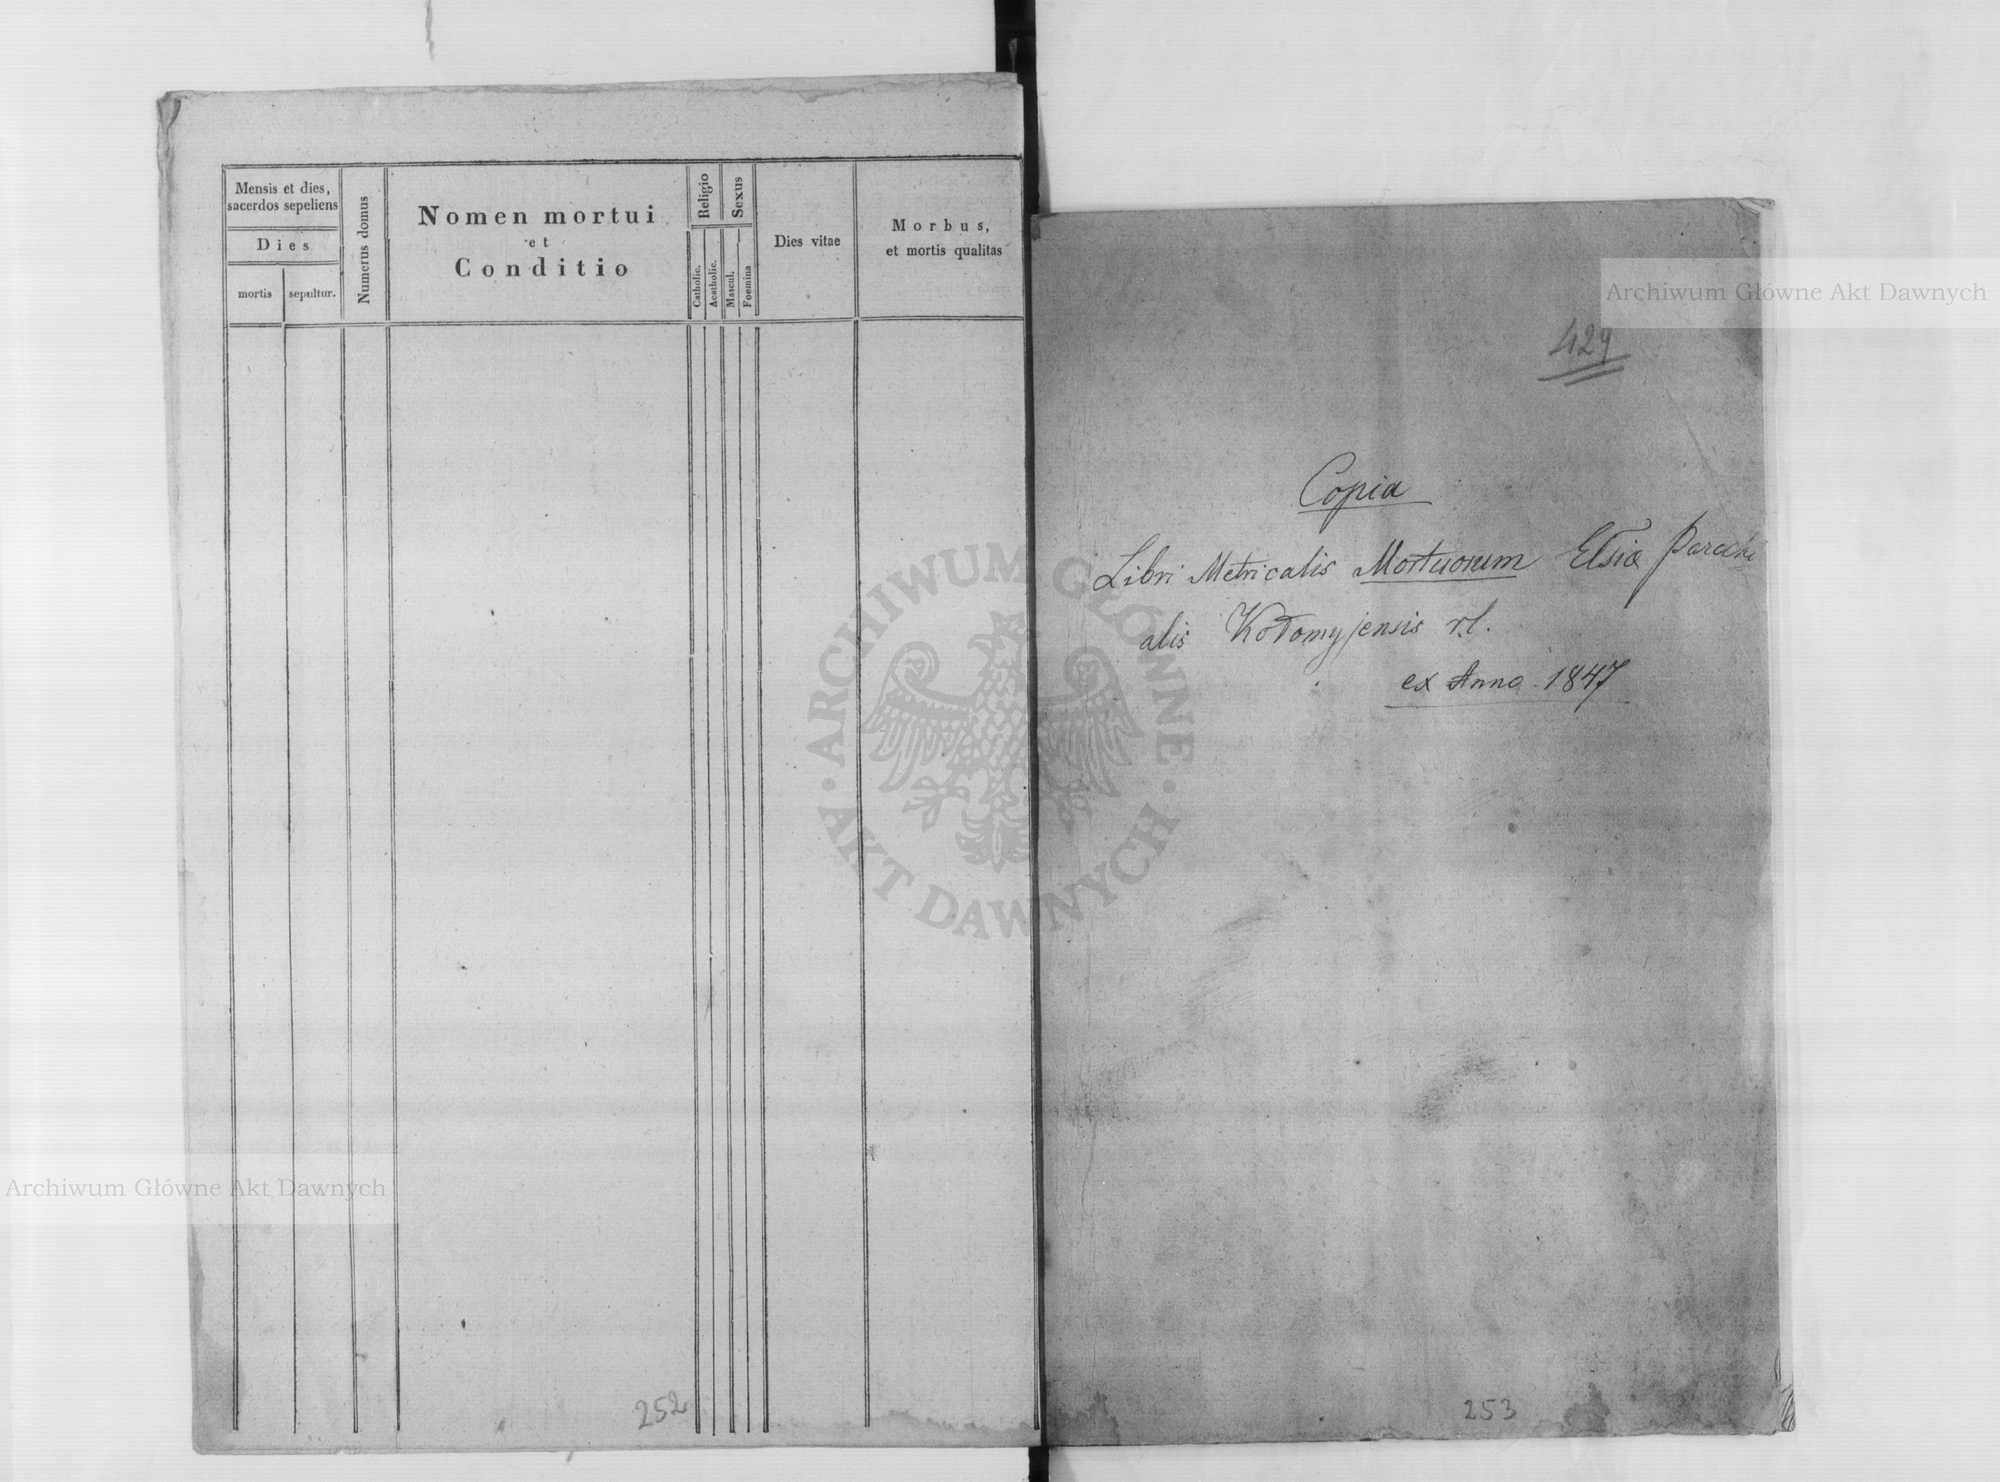 Mensis et dies,
sacerdos sepeliens
Dies
mortis
sepultur.
Numerus domus
Nomen mortui
et
Conditio
Religio
Catholic.
Acatholic.
Sexus
Mascul.
Foemina
Dies vitae
Morbus,
et mortis qualitas
252
Archiwum Główne Akt Dawnych
429
Copia
Libri Metricalis Mortuorum Elsiæ Parochi
alis Kołomyjensis r.l.
ex Anno 1847
253
ARCHIWUM GŁÓWNE
AKT DAWNYCH
Archiwum Główne Akt Dawnych